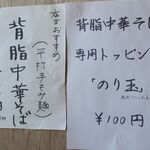 背脂中華そば
専用トッピン
「のり玉」
¥100円
店主おすすめ
(平打手もみ麺)
背脂中華そば